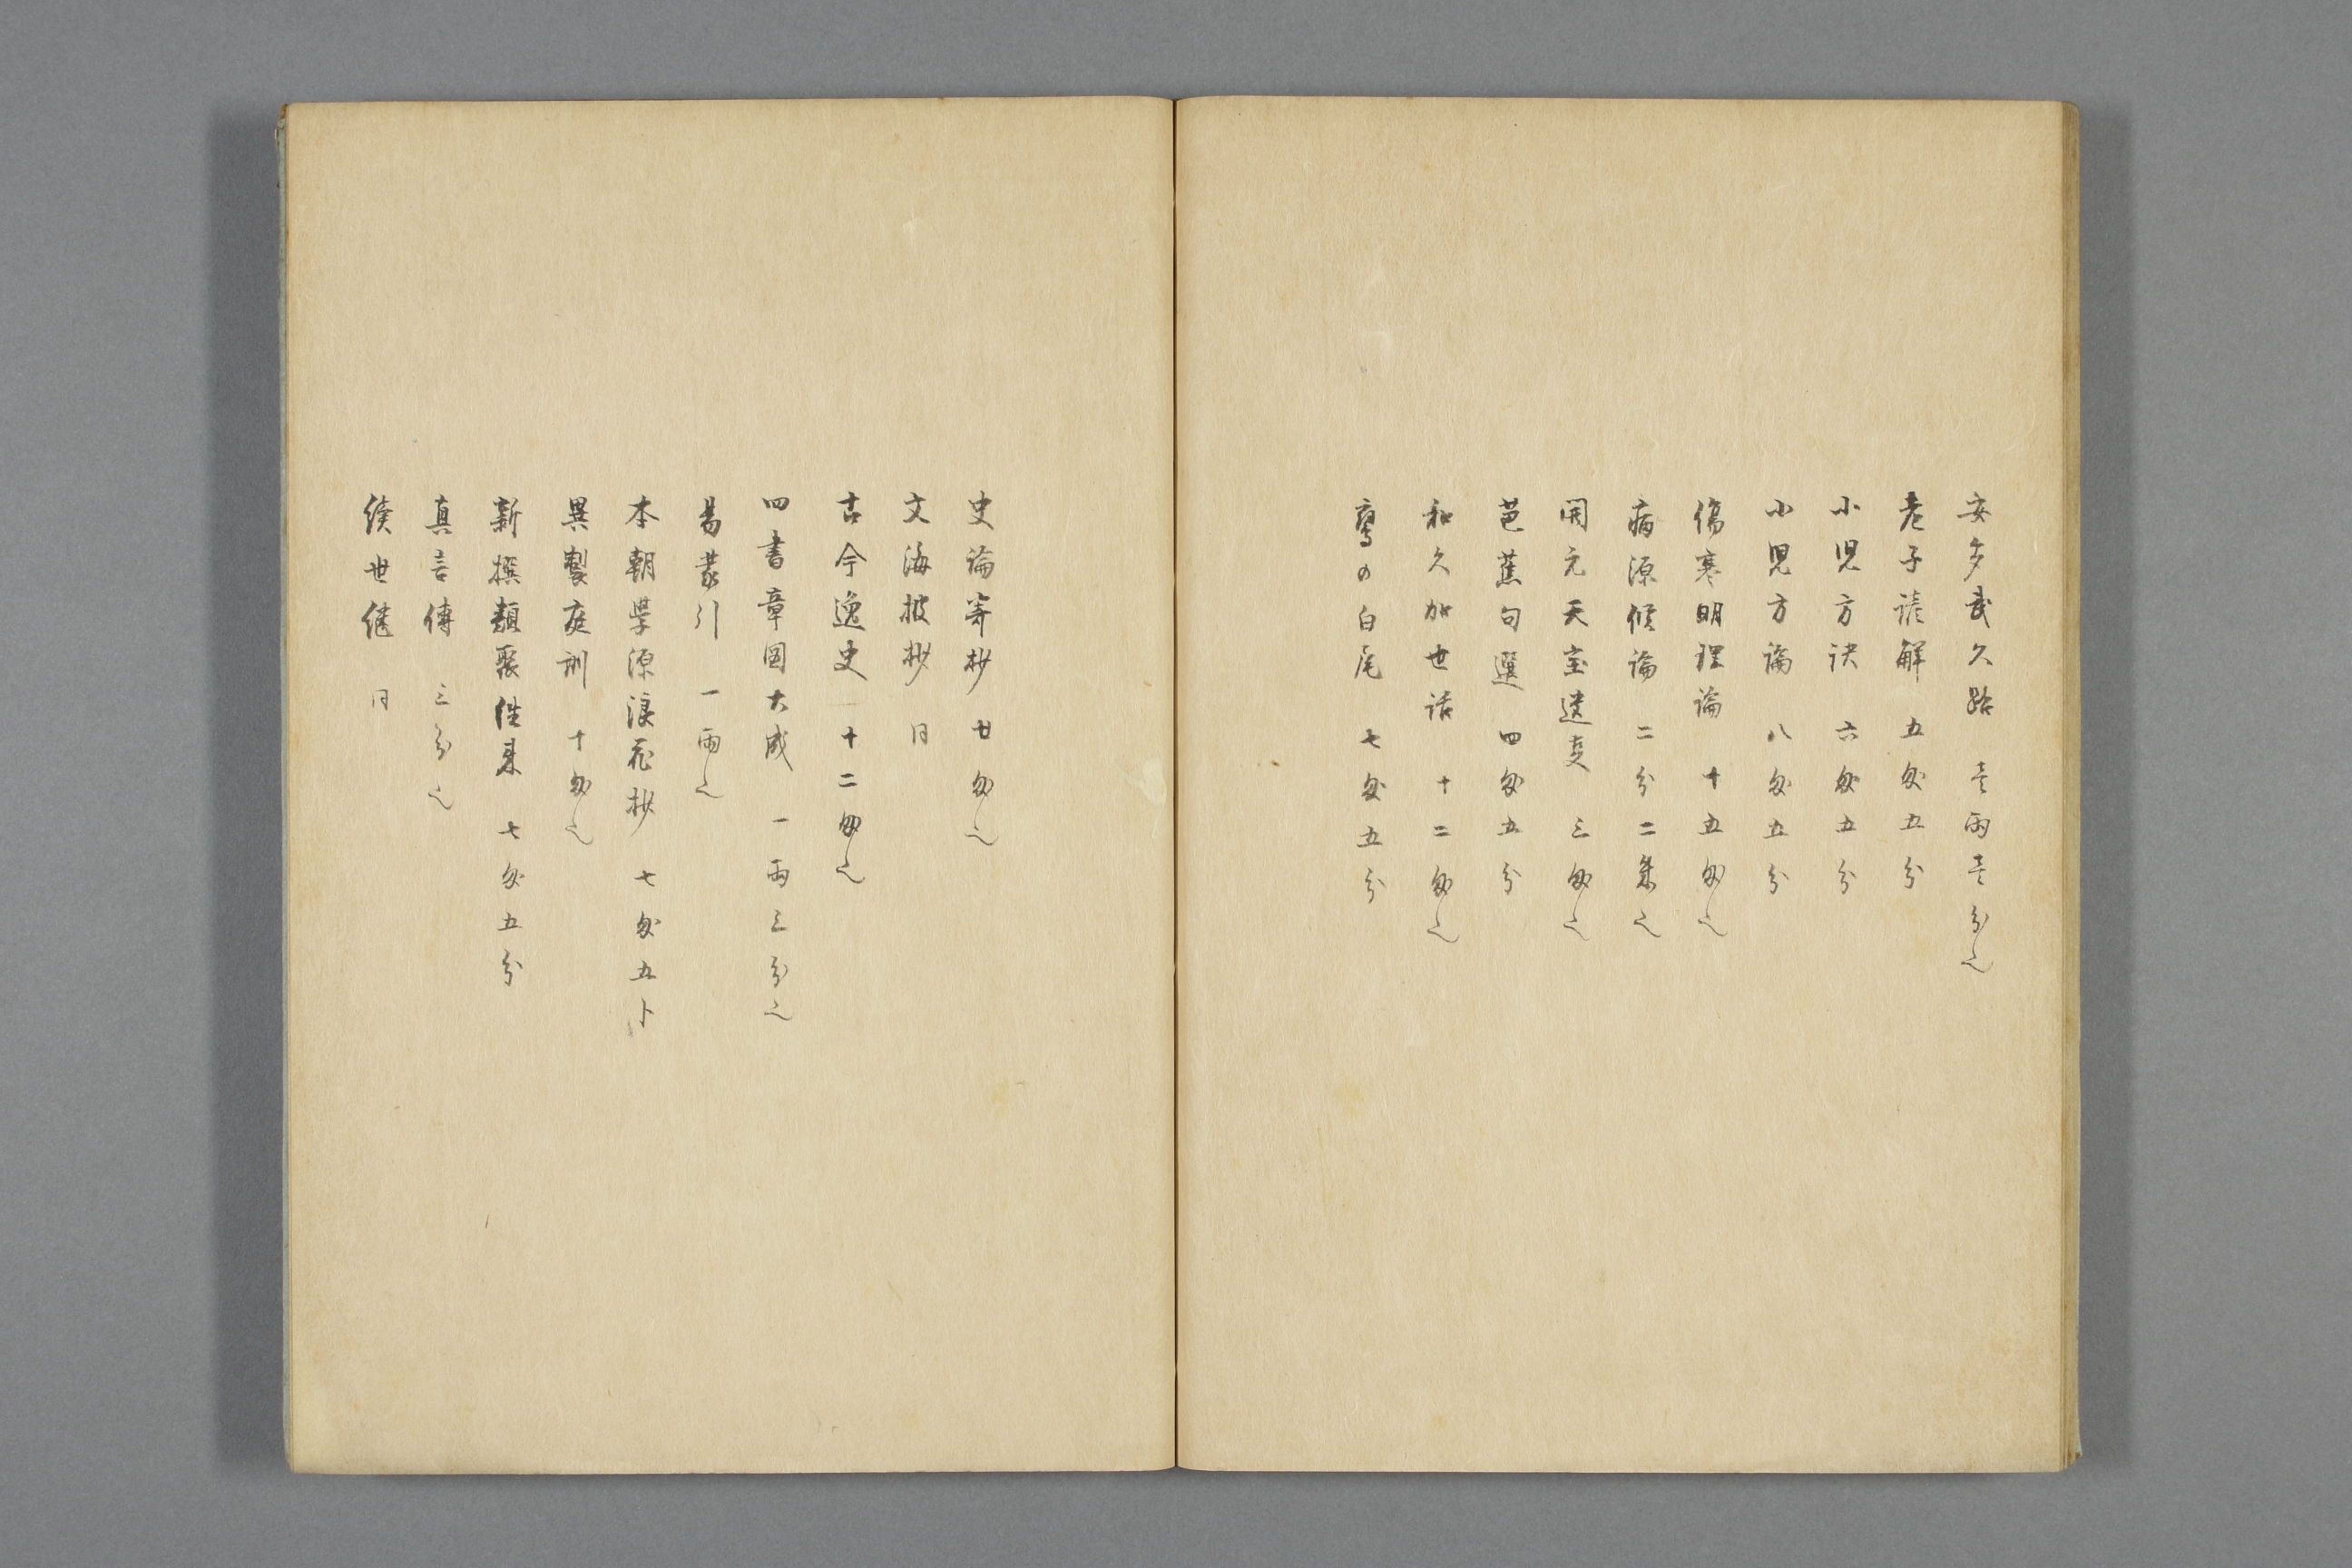 安多武久路 壱両壱分之
老子諺解 五匁五分
小児方訣 六匁五分
小児方論 八匁五分
傷寒明理論 十五匁之
病源候論 二分二朱之
開元天宝遺事 三匁之
芭蕉句選 四匁五分
和久加世話 十二匁之
鸞の白尾 七匁五分
史論等抄 廿匁之
文海披抄 同
古今逸史 十二匁之
四書章図大成 一両三分之
易蒙引 一両之
本朝学源浪花抄 七匁五卜
異製庭訓 十匁之
新撰類聚往来 七匁五分
真言傳 三分之
続世継 同